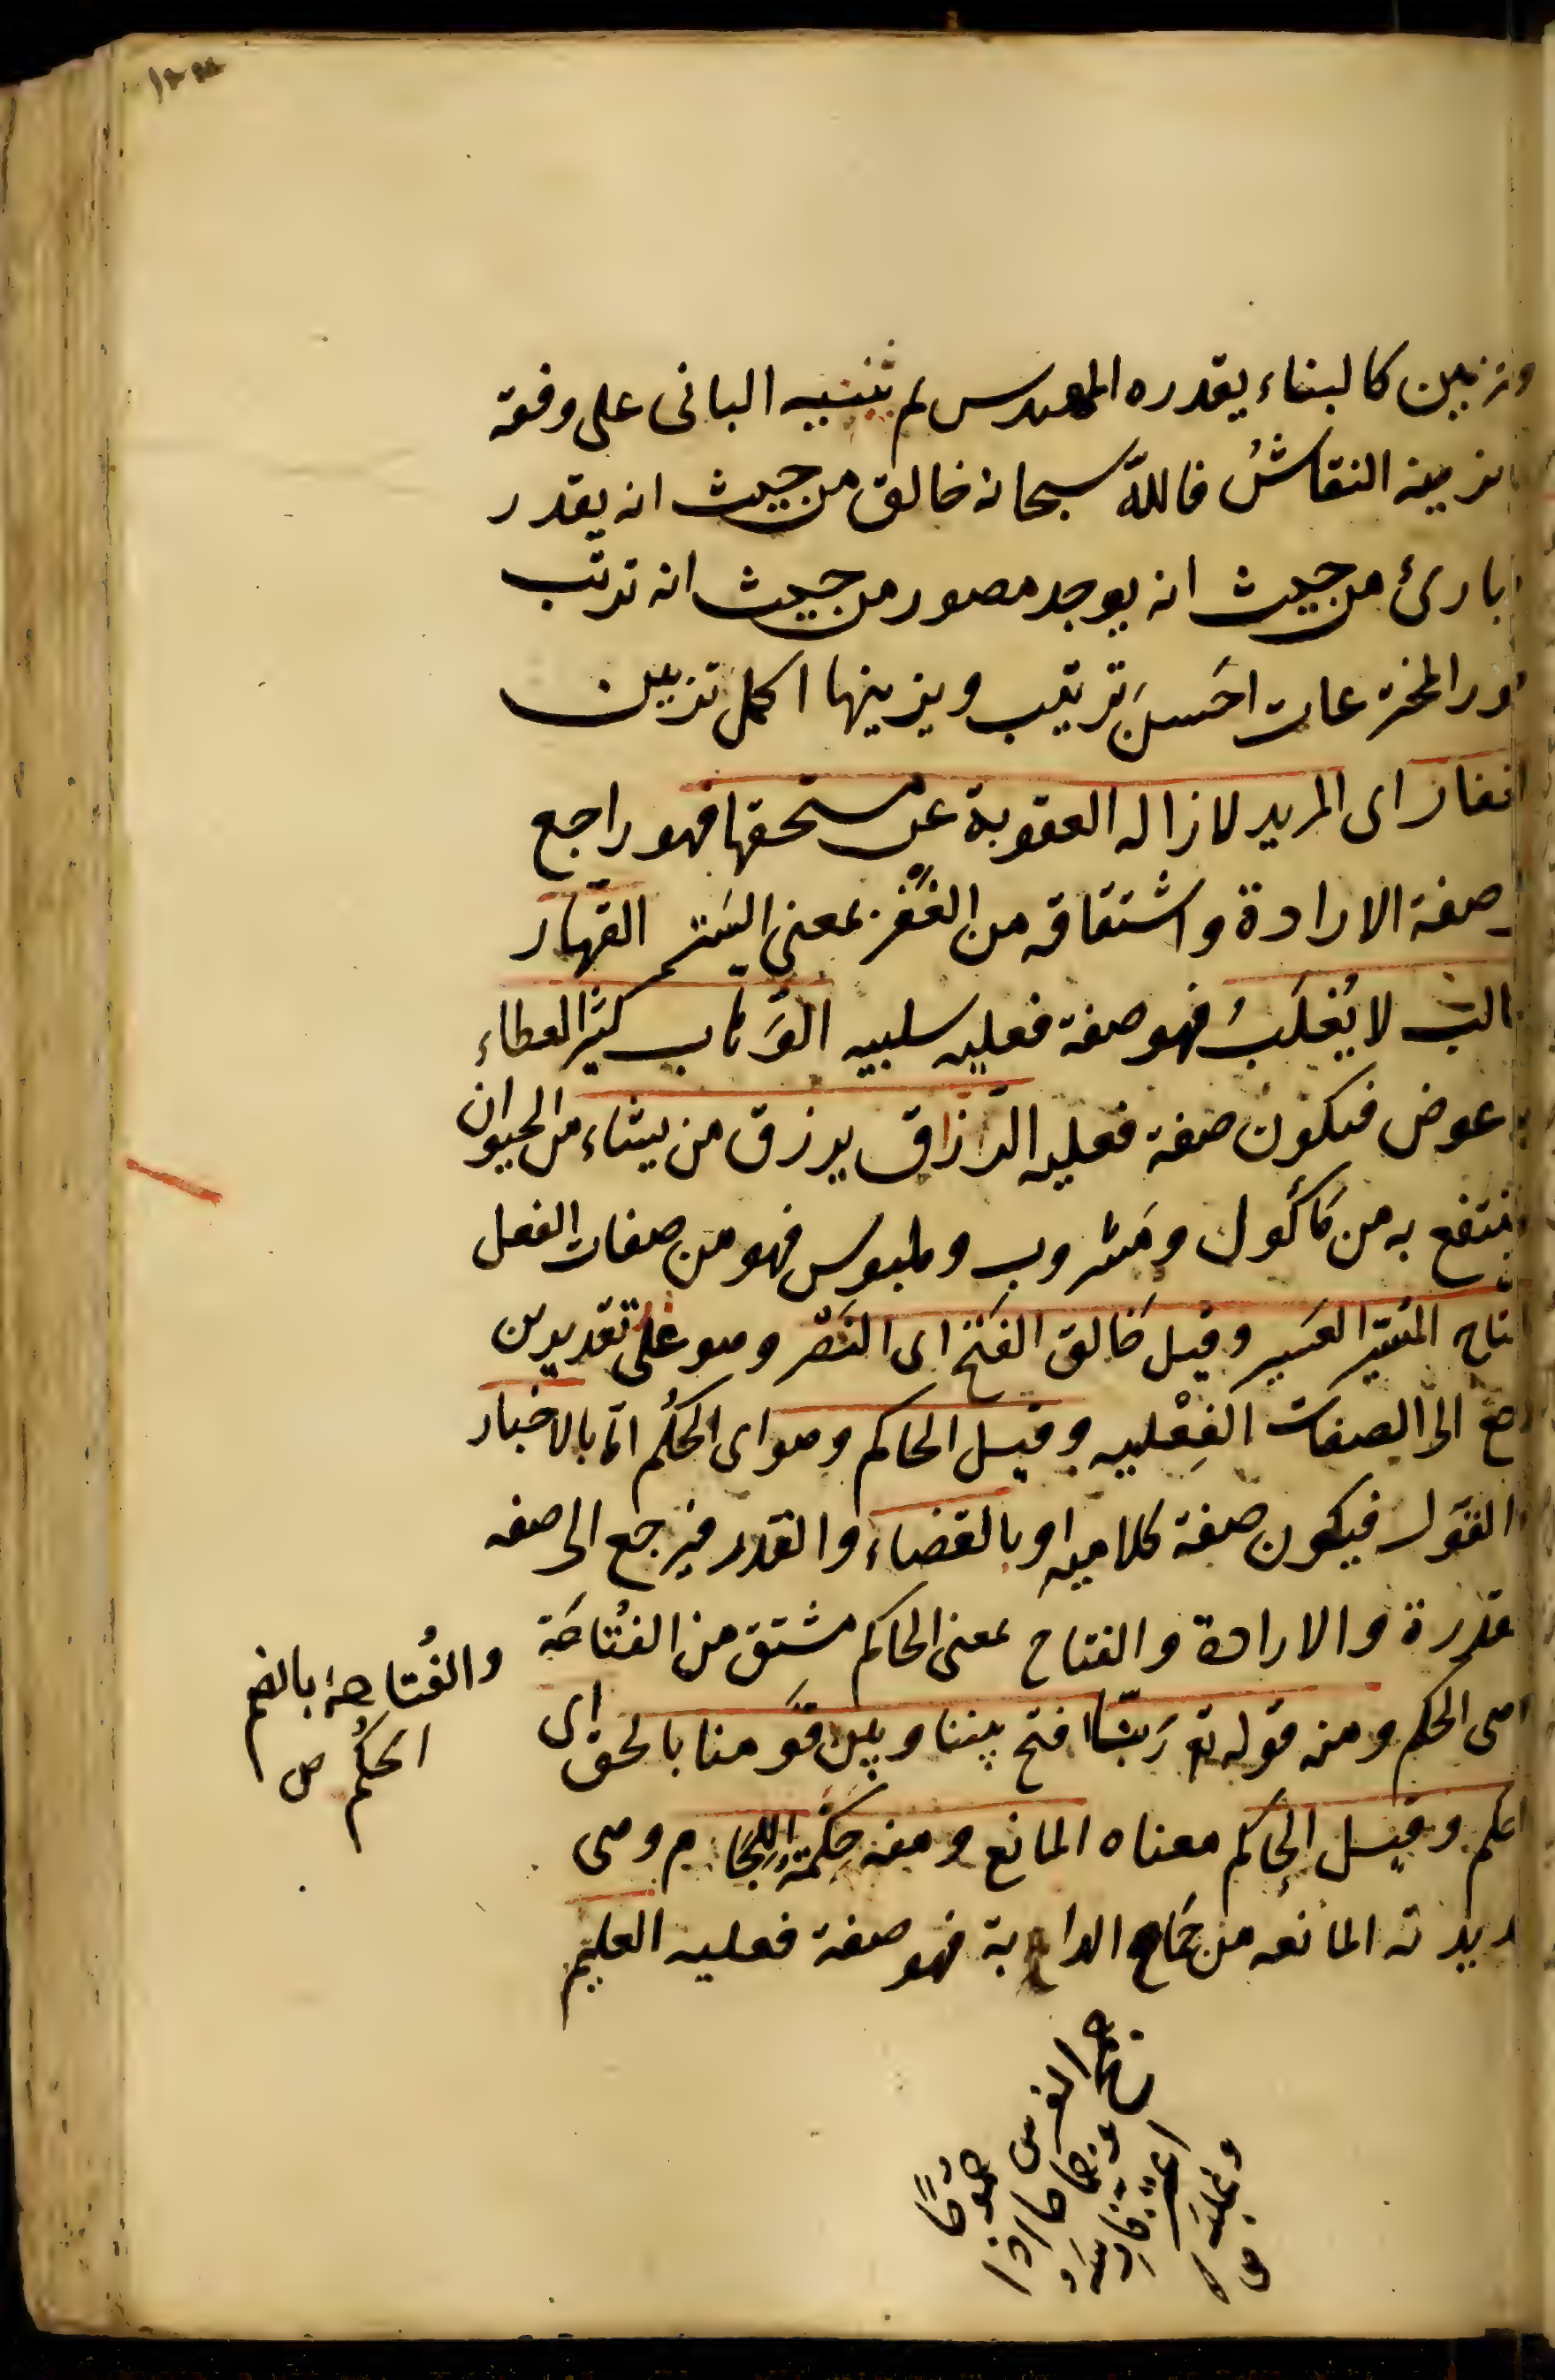 وتزيين كالبناء يقدره المهندس ثم يبنيه البانى على وفقه
يزينه النقاشُ فاللّه سبحانه خالق من حيث انه يقدر
بارئ من حيث انه يوجد مصور من حيث انه ترتب
ور المخترعات احَسنَ ترتيب ويزينها اكمل تزيين
الغفار اى المريد لازاله العقوبة عن مستحقها فهو راجع
صفة الارادة واشتقاقه من الغَفْر بمعنى السَتر القهّار
الب لا يُغلَبُ فهو صفة فعليه سلبيه الوَهّاب كثير العطاء
عوض فيكون صفة فعليه الرزاق يرزق من يشاء من الحيوان
ينتفع به من مَأكول ومَشروب وملبوس فهو من صفات الفعل
الفتاح المُيسّر العَسير وقيل خَالق الفَتح اى النَصر وهو على تقديرين
راجع الى الصفات الفِعْليه وقيل الحاكم وهو اى الحكُم امّا بالاخبار
القَول فيكون صفة كلاميه او بالقضاء والقدر فيرجع الى صفه
قدرة والارادة والفتاح بمعنى الحاكم مشتق من الفُتاحَة
اى الحكم ومنه قوله تع رَبّنا افتح بيننا وبين قَومنا بالحق اى
احكم وقيل الحاكم معناه المانع ومنه حِكْمَةُ اللِجَام وهى
حديدته المانعه من جَماح الدابة فهو صفة فعليه العليم
والفُتاحة بالضم
الحُكُم ص
جمح الفرس جموحًا
وجماحا اذا
اعتزّ فارسَه
وغلبَه ص